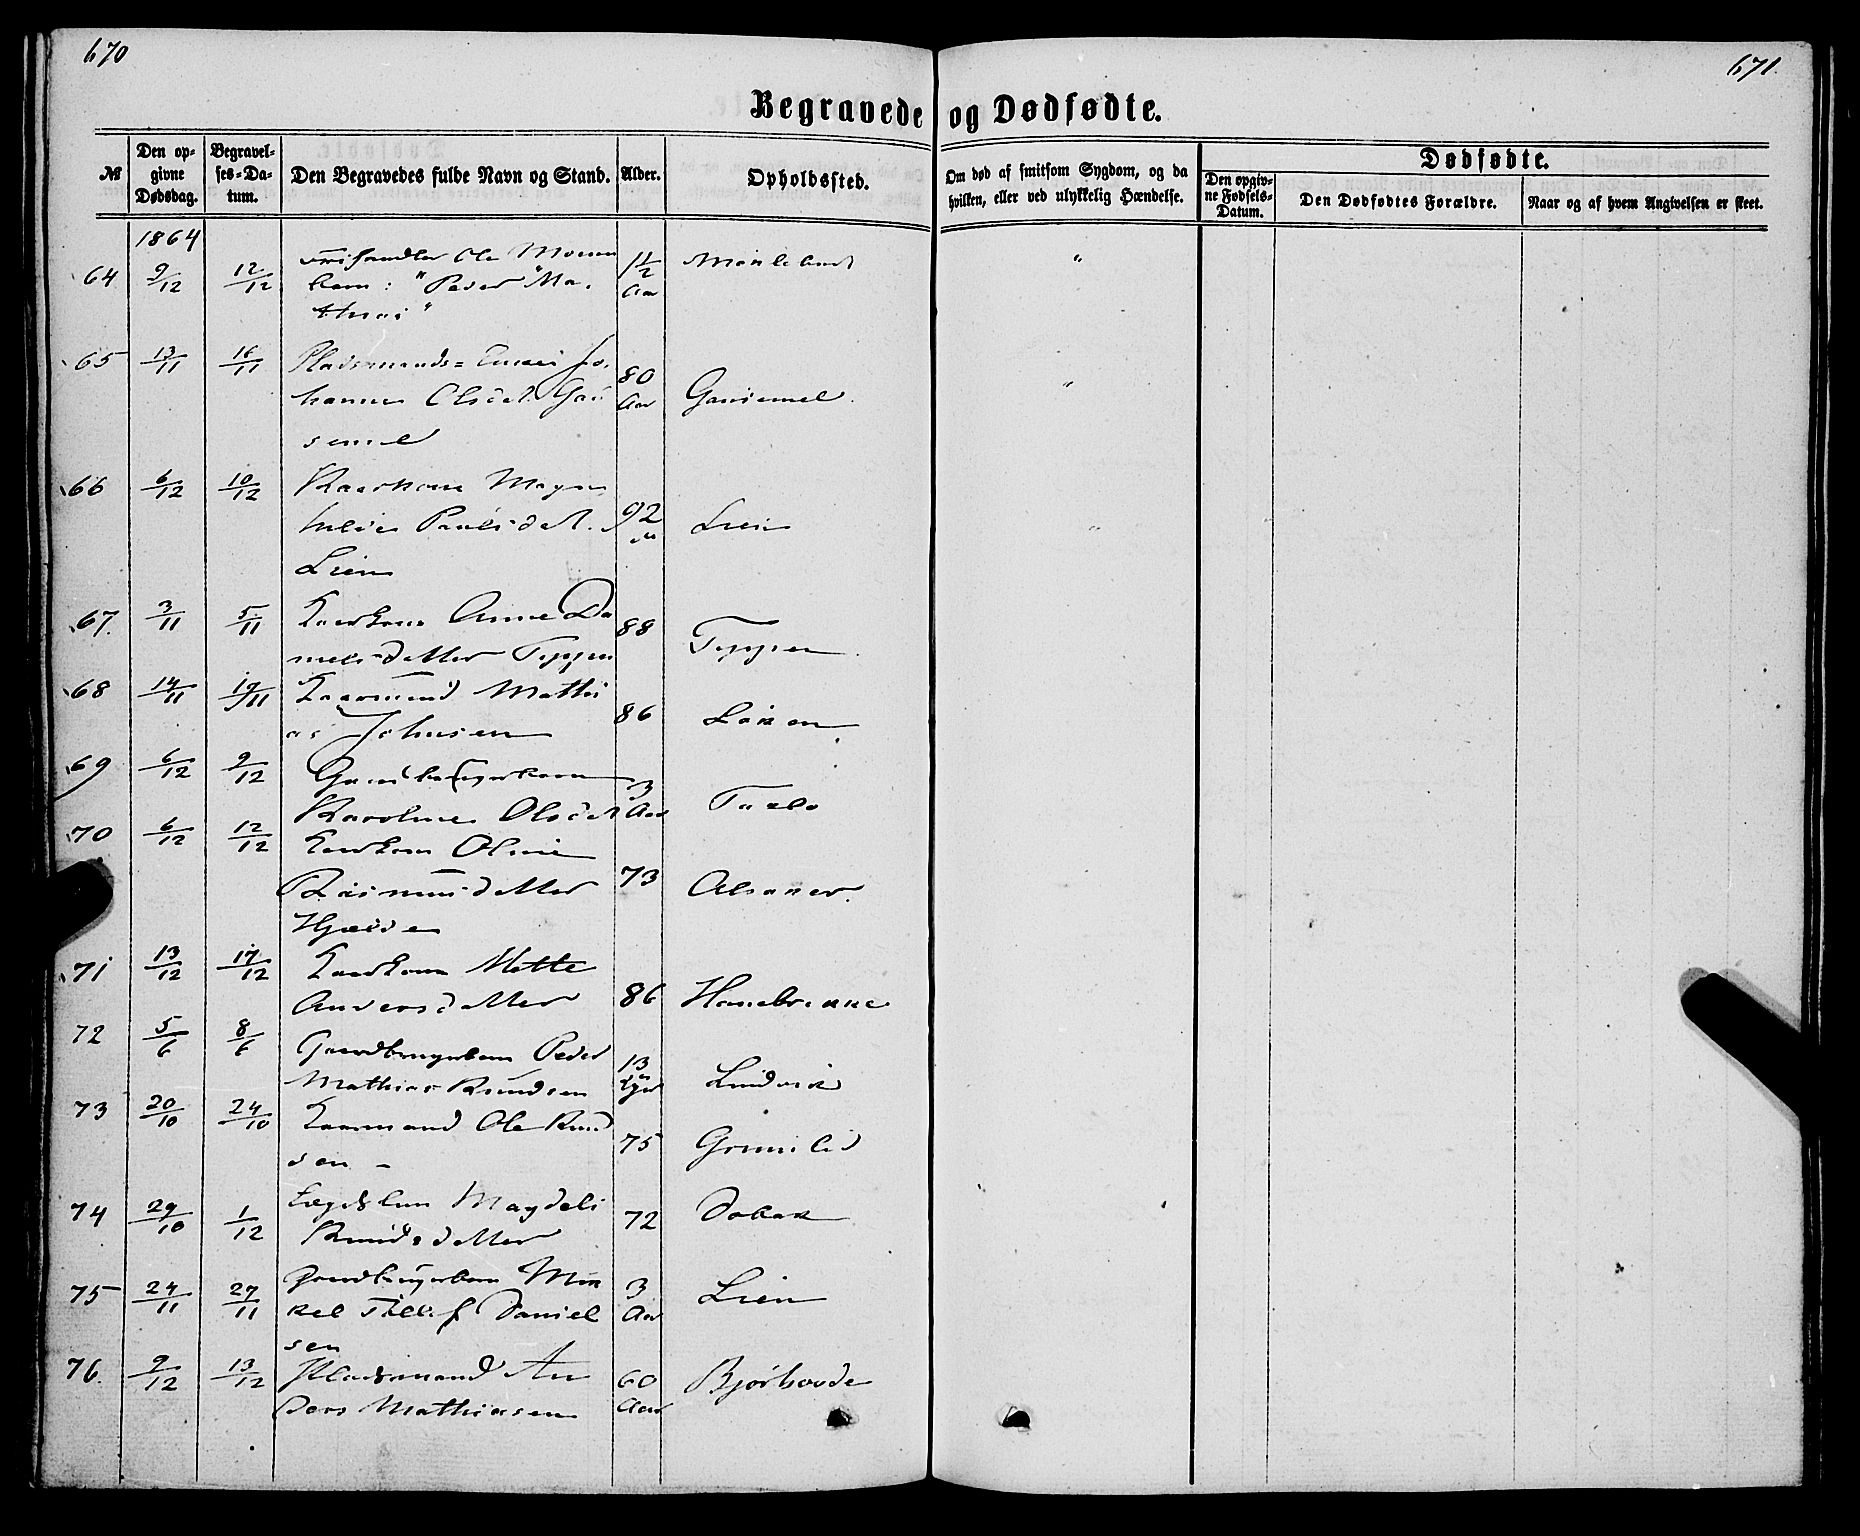 670
671.
Begravede og Dødfødte.
№
Den opgivne Dødsdag.
Begravelses-Datum.
Den Begravedes fulde Navn og Stand.
Alder.
Opholdssted.
Om død af smitsom Sygdom, og da hvilken, eller ved ulykkelig Hændelse.
Dødfødte.
Den opgivne Fødsels-Datum.
Den Dødfødtes Forældre.
Naar og af hvem Angivelsen er skeet.
1864
64 9/12 12/12 Ole
barn: "Peder Ma-
thias"
1 1/2 Aar "
65 13/11 16/11 Pladsmands-Enken Jo-
hanne Olsdat. Gau
semel
80 Aar Gausemel. "
66 6/12 10/12 Kaarkone Magn
hilde Paulsdat.
Lien
92 " Lien "
67. 3/11 5/11 Kaarkone Anne Da
nielsdatter Teppen
88 Teppen
68 14/11 19/11 Kaarmand Mathi
as Johnsen
86 Løken
69 6/12 9/12 Gaardbrugerbarn
Karoline Olsdat
3 Aar
70 6/12 12/12 Kaarkone Oline
Rasmusdatter
Hjelde
73 Alsaker.
71 13/12 17/12 Kaarkone Mette
Andersdatter
86 Hanebrekke
72 5/6 8/6 Gaardbrugerbarn Peder
Mathias Knudsen
13 Lindvik
73 20/10 24/10 Kaarmand Ole Knud
sen -
75 Grønlid
74 29/10 1/12 Lægdslem Magdeli
Knudsdatter
72
75 24/11 27/11 Gaardbrugerbarn Mik
kel Daniel
sen
3 Aar Lien
76. 9/12 13/12 Pladsmand An
ders Mathiasen
60 Aar Bjørhovde